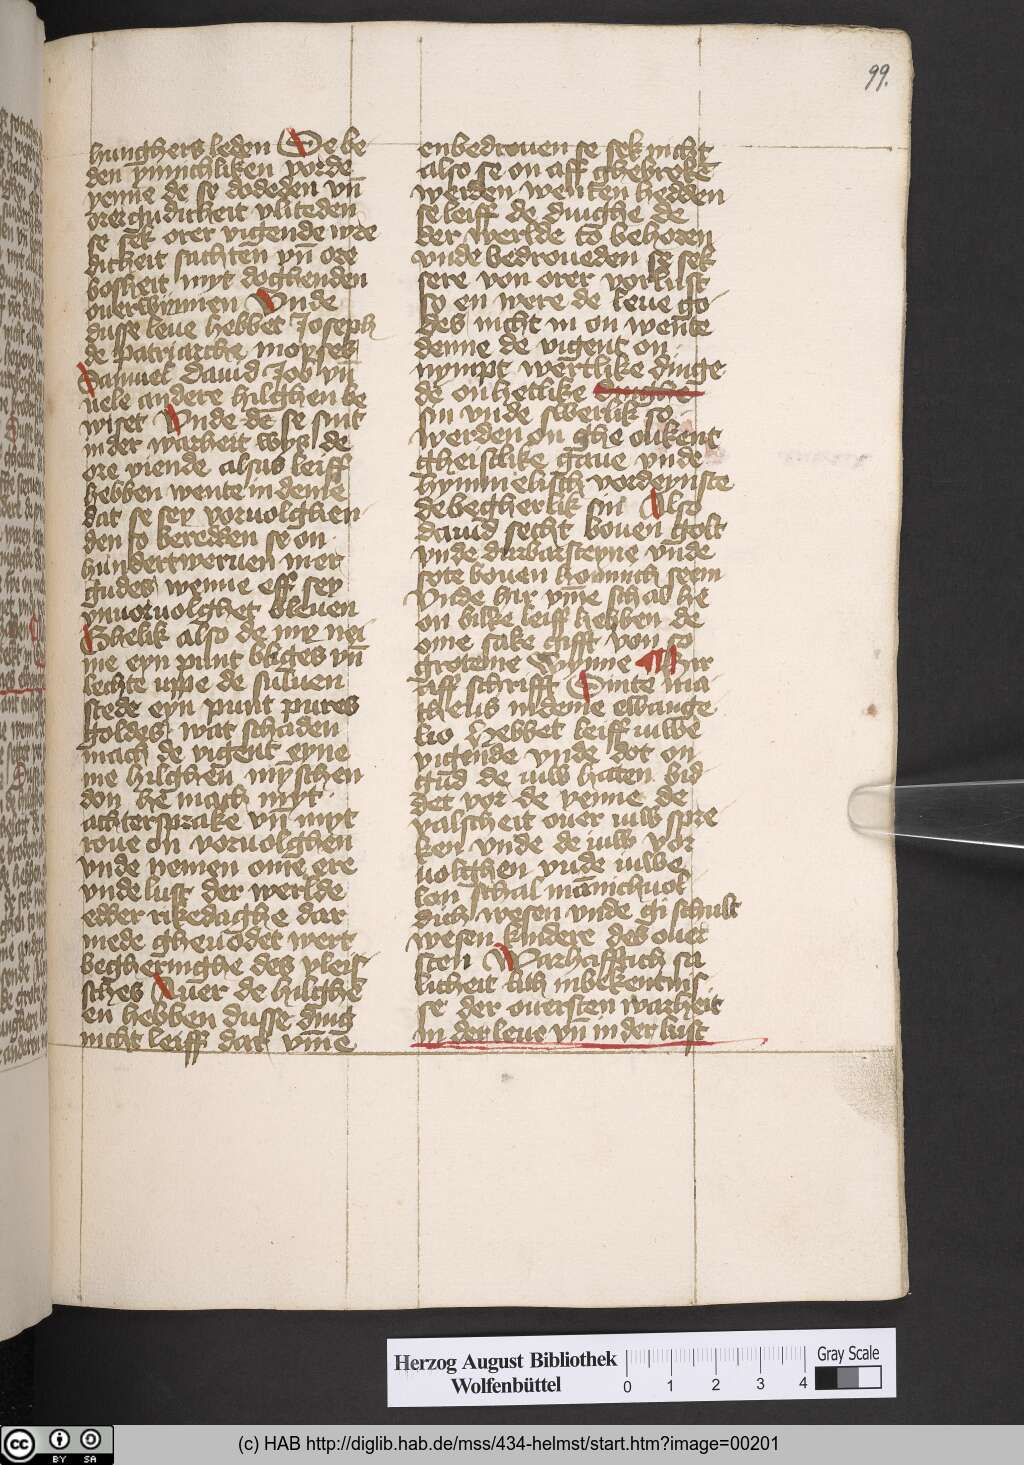 99.
hunghers leden De be
den ynnichliken vor de
yenne de se dodeden vn̄
orer gudicheit vliteden
se sek orer vigende wre
dicheit suchten vn̄ ore
bosheit myt doghenden
ouerwinnen Vnde
dusse leue hebbet Joseph
de patriarcha moyses
Samuel dauid Job vn̄
vele andere hilghen be
wiset Vnde dē se sint
in der warheit wys de
ore viende alsus leiff
hebben wente in deme
dat se sey voruolghen
den so beredden se on
hundertweruen mer
gudes wenne eff sey
vnuoruolghet bleuen
Ghelik also de my nei
me eyn punt blyges vn̄
lechte uppe de suluen
stede eyn punt pures
goldes wat schaden
mach de vigent eyne
me hilghen mynschen
don he mach myt
achtersprake vn̄ myt
roue on voruolghen
vnde nemen ome ere
vnde lust der werlde
edder rikedaghe dar
mede gheuodet wert
begheringhe des vleis
sches Auer de hilghē
en hebben dusse ding
nicht leiff dar vmme
en bedrouen se sek nicht
also se on aff ghebrekē
werden wenten hedden
se leiff de dinghe de
der werlde to behoren
vnde bedroueden se sek
sere von orer vorlust
so en were de leue go
des nicht in on wente
denne de vigent on
nympt wertlike dinge
de on hetlike dinghe
sin vnde swerlik so
werden on ghe olikent
gheistlike gaue vnde
hymmelisch vordeynste
de begherlik sin Also
dauid secht bouen golt
vnde durbar steyne vnde
sote bouen honnich seem
Vnde hir vmme schal he
on bilke leiff hebben de
ome sake gifft von so
groteme Wynne Hir
aff schrifft Sinte ma
theus in deme ewange
lio Hebbet leiff iuwe
vigende vnde dot on
gud de iuw haten bid
det vor de yenne de
valscheit ouer iuw spre
ken vnde de iuw vor
uolghen vnde iuwe
lon schal mānichuol
dich wesen vnde gi schult
wesen kindere des ouer
sten Warhafftich sa
licheit lich in bekentnis
se der ouersten warheit
in der leue vn̄ in der lust
Herzog August Bibliothek
Wolfenbüttel
0 1 2 3 4
Gray Scale
cc BY SA
(c) HAB http://diglib.hab.de/mss/434-helmst/start.htm?image=00201